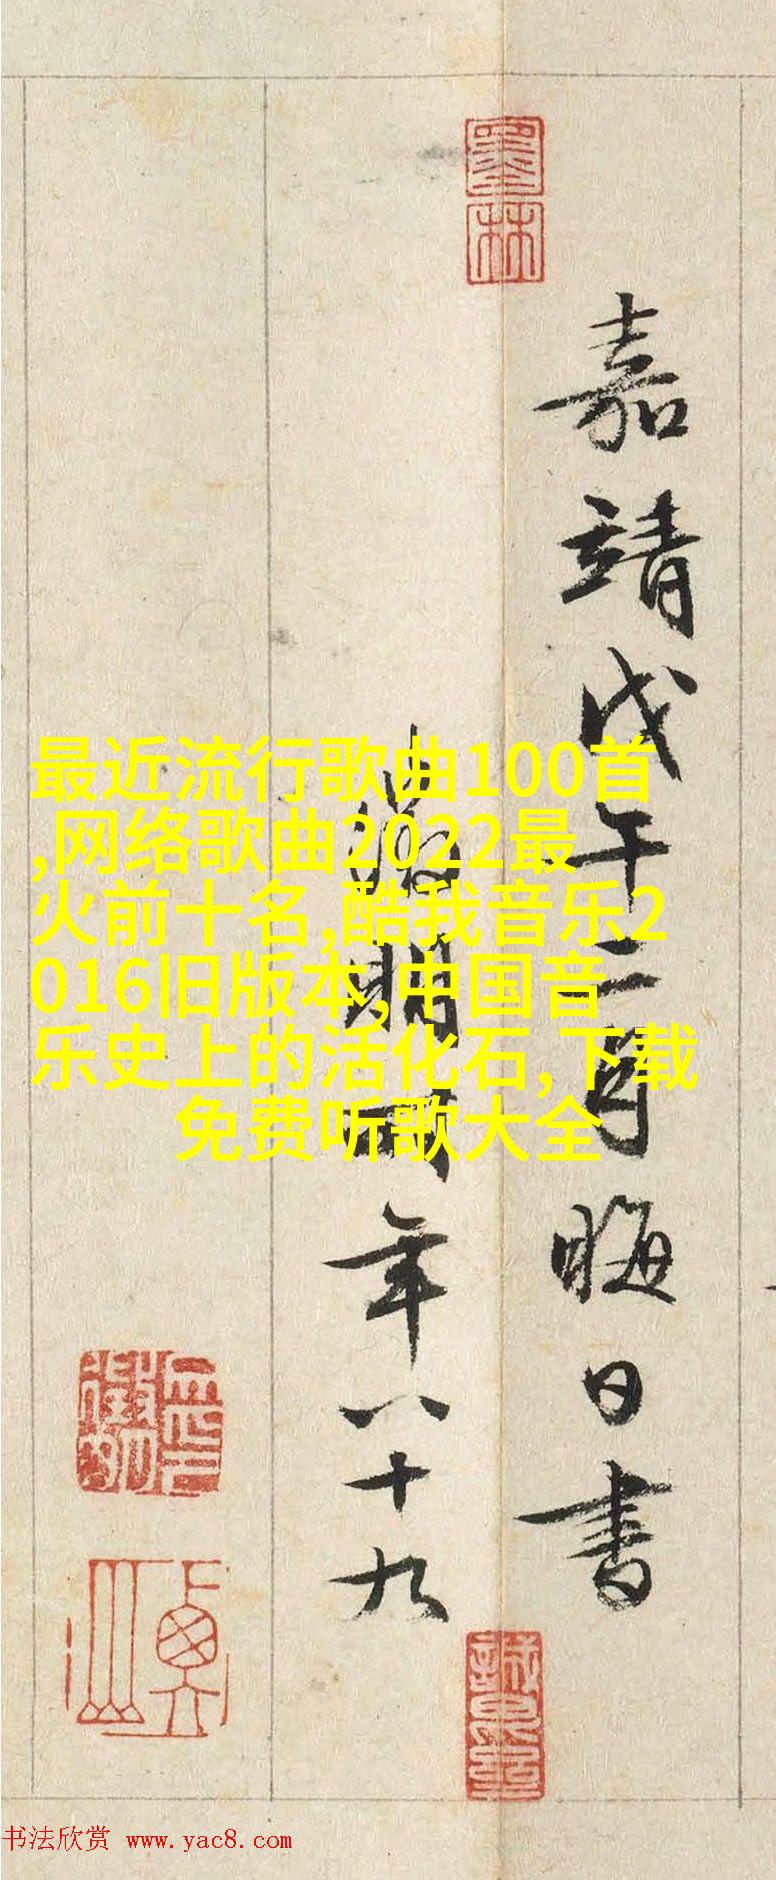 嘉靖戊午二月晦日书
徵明时年八十九
墨林
最近流行歌曲100首
,网络歌曲2022最
火前十名,酷我音乐2
016旧版本,中国音
乐史上的活化石,下载
免费听歌大全
书法欣赏 www.yac8.com